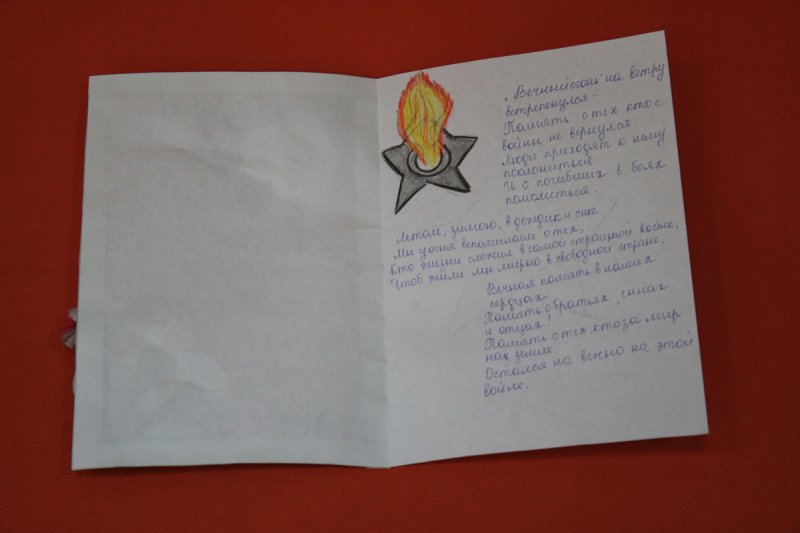 „Вечный огонь" на ветру
встрепенулся.
Память о тех кто с
войны не вернулся.
Люди приходят к нему
поклониться
И о погибших в боях
помолиться.
Летом, зимою, в дождик и снег
Мы у огня вспоминаем о тех,
Кто жизни сложил в самой страшной войне,
Чтоб жили мы мирно в свободной стране.
Вечная память в наших
сердцах
Память о братьях, сынах
и отцах!
Память о тех кто за мир
на земле
Остался на вечно на этой
войне.